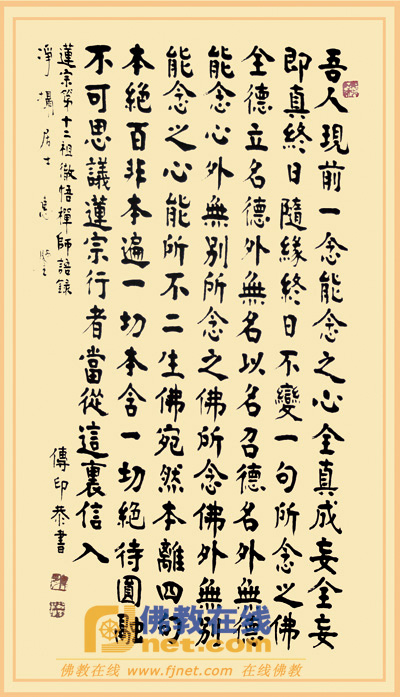 吾人現前一念能念之心全真成妄全妄
即真終日隨緣終日不變一句所念之佛
全德立名德外無名以名召德名外無德
能念心外無別所念之佛所念佛外無別
能念之心能所不二生佛宛然本離四句
本絕百非本遍一切本含一切絕待圓融
不可思議蓮宗行者當從這裏信入
蓮宗第十二祖徹悟禪師語錄
淨 居士 惠
傳印恭書
佛教在线
net.com
佛教在线 www.fjnet.com 在线佛教